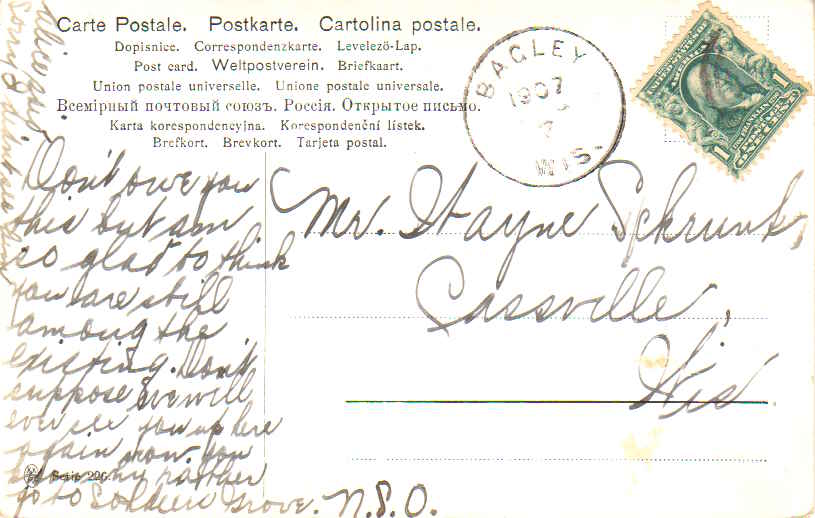 Carte Postale. Postkarte. Cartolina postale.
Dopisnice. Correspondenzkarte. Levelező-Lap.
Post card. Weltpostverein. Briefkaart.
Union postale universelle. Unione postale universale.
Всемірный почтовый союзъ. Россія. Открытое письмо.
Karta korespondencyjna. Korespondenční lístek.
Brefkort. Brevkort. Tarjeta postal.
BAGLEY
1907
7
WIS.
1 1
ONE CENT
Mr. Wayne Schrunk,
Cassville,
Wis.
Don't owe you
this but am
so glad to think
you are still
among the
existing. Don't
suppose we will
ever see you up here
again now. you
know my partner
go to Soldiers Grove. N.S.O.
Serie 226.
Alice said
sorry I